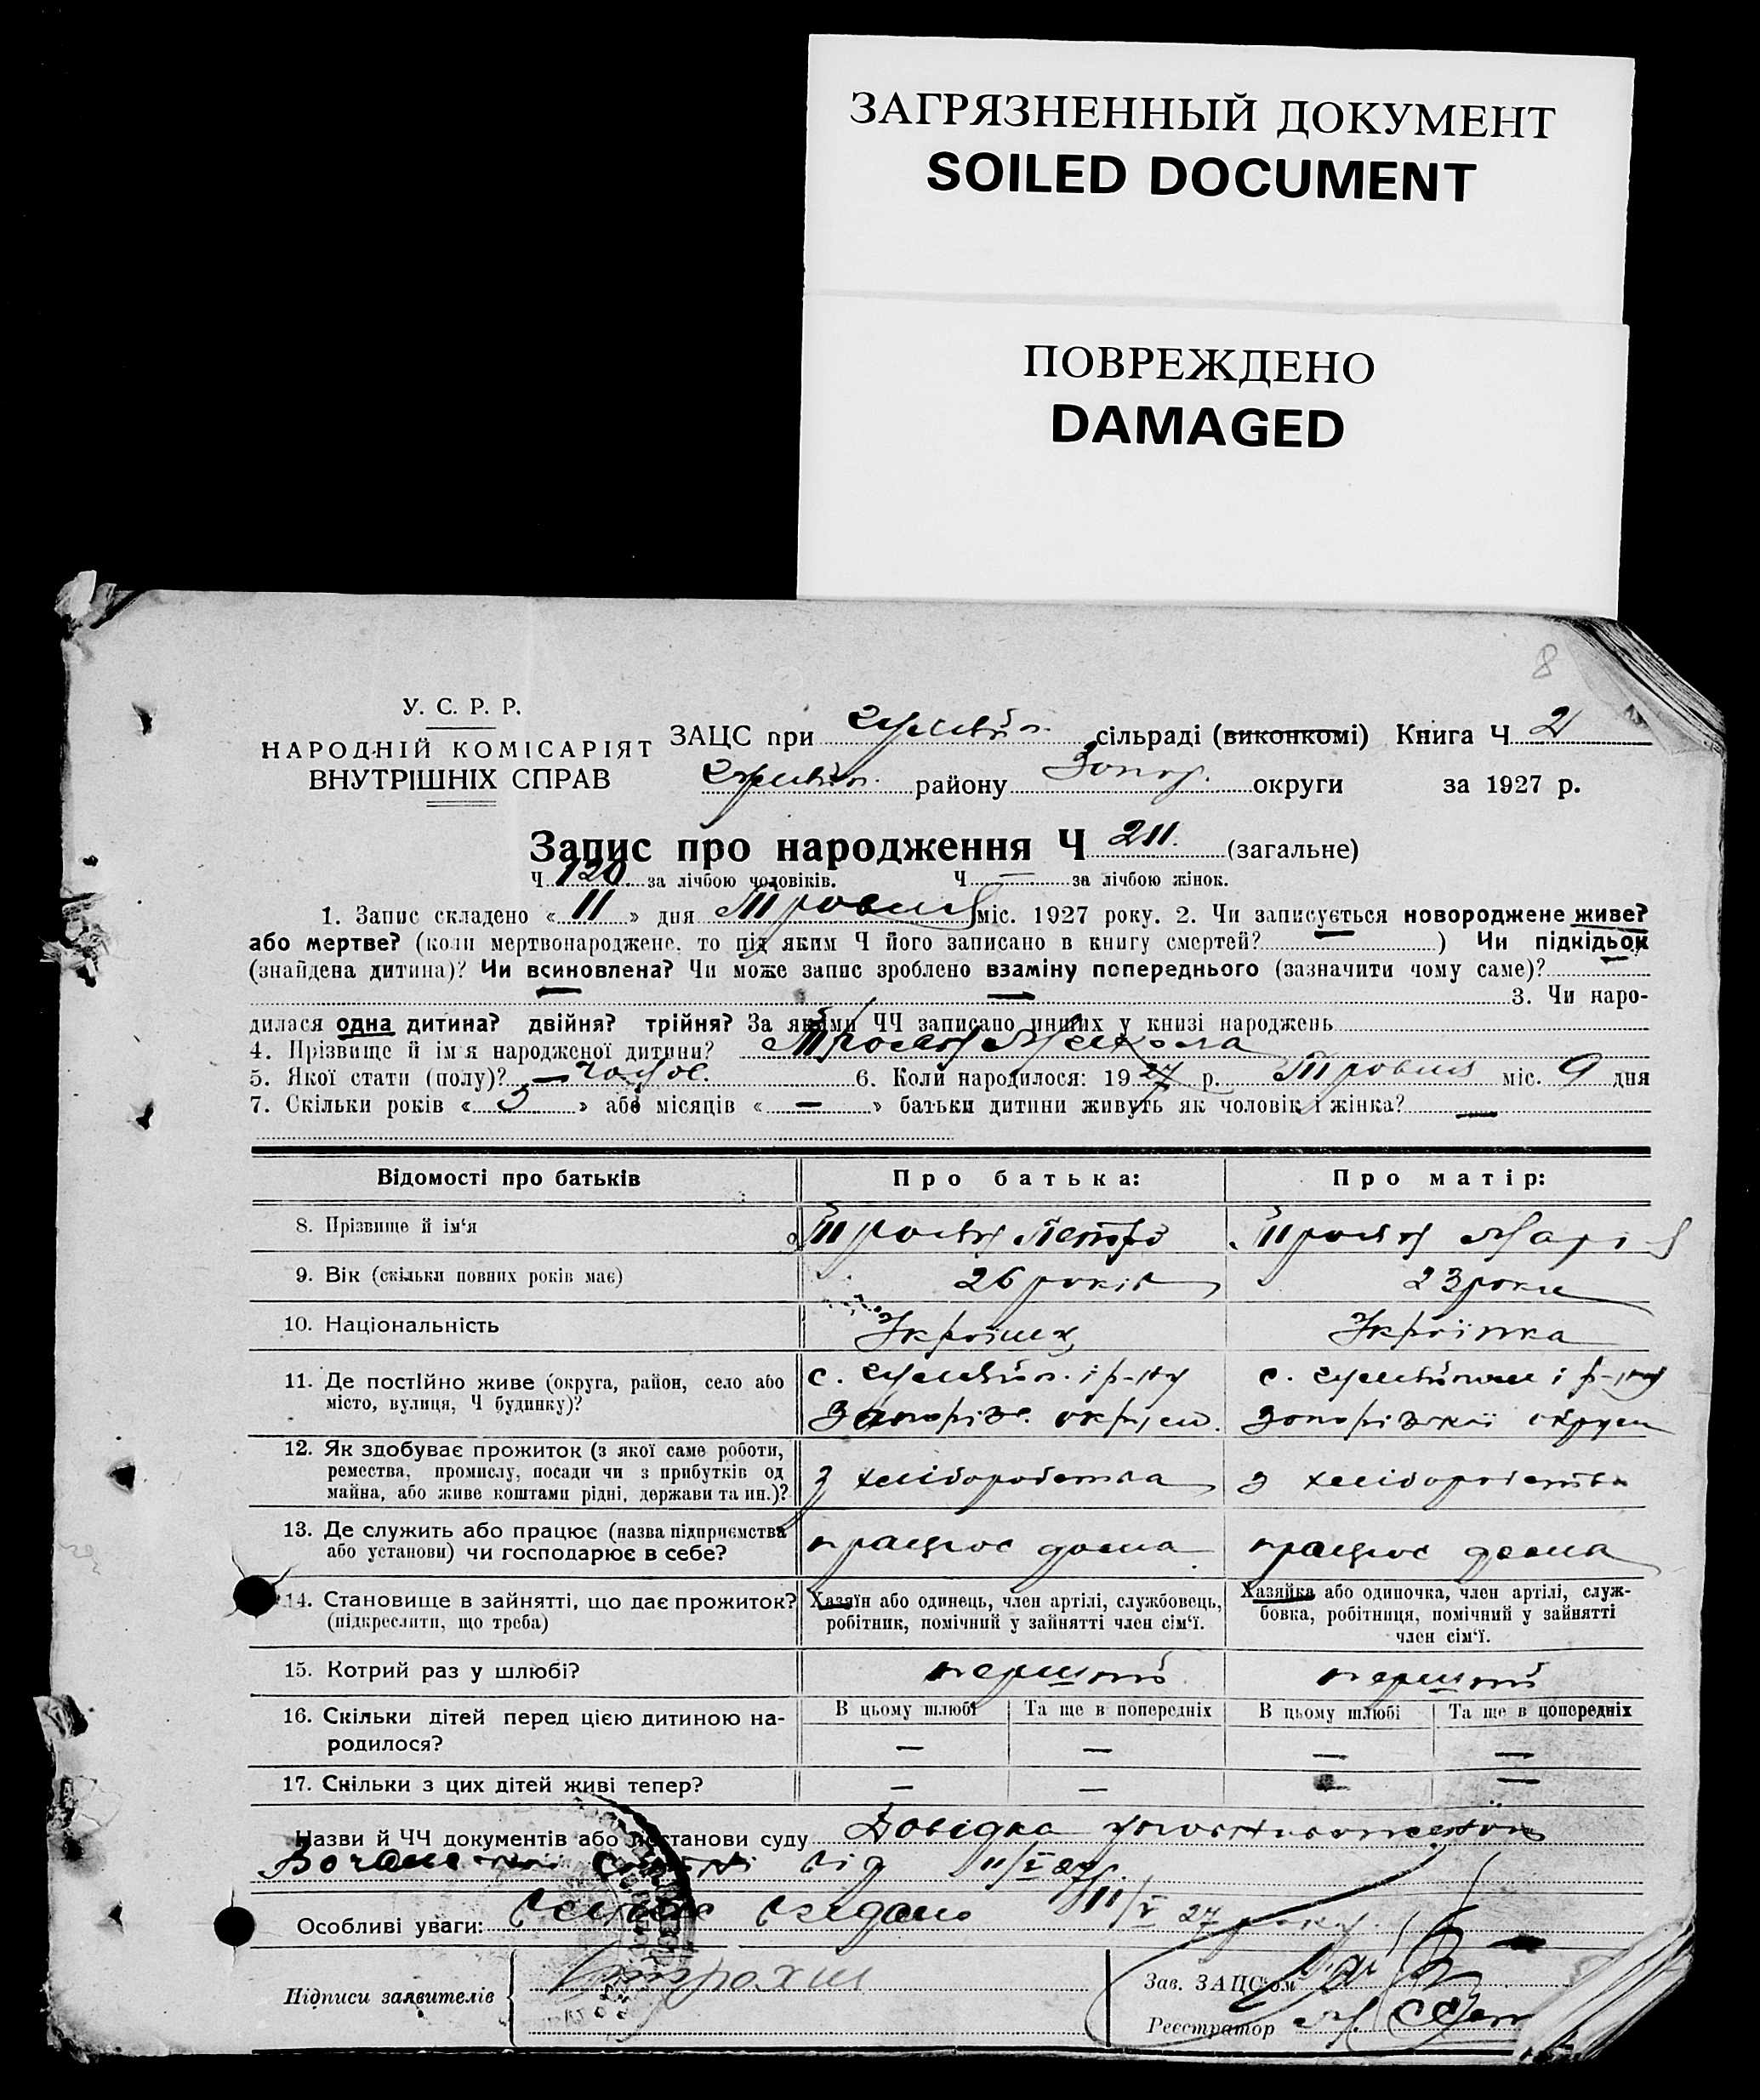 ЗАГРЯЗНЕННЫЙ ДОКУМЕНТ
SOILED DOCUMENT
ПОВРЕЖДЕНО
DAMAGED
8
У. С. Р. Р.
НАРОДНІЙ КОМІСАРІЯТ
ВНУТРІШНІХ СПРАВ
ЗАЦС при сільраді (виконкомі) Книга Ч 2
району Запор. округи за 1927 р.
Запис про народження Ч 211. (загальне)
Ч 120. за лічбою чоловіків. Ч — за лічбою жінок.
1. Запис складено « 11 » дня Травня міс. 1927 року. 2. Чи записується новороджене живе?
або мертве? (коли мертвонароджене, то під яким Ч його записано в книгу смертей? ) Чи підкідьок
(знайдена дитина)? Чи всиновлена? Чи може запис зроблено взаміну попереднього (зазначити чому саме)?
3. Чи наро-
дилася одна дитина? двійня? трійня? За якими ЧЧ записано инших у книзі народжень
4. Прізвище й ім'я народженої дитини? Микола
5. Якої стати (полу)? — чолов. 6. Коли народилося: 1927 р. Травня міс. 9 дня
7. Скільки років « 3 » або місяців « — » батьки дитини живуть як чоловік і жінка? —
Відомості про батьків Про батька: Про матір:
8. Прізвище й ім'я Петро Марія
9. Вік (скільки повних років має) 26 років 23 роки
10. Національність Українец Українка
11. Де постійно живе (округа, район, село або
місто, вулиця, Ч будинку)? с. і р-ну с. і р-ну
Запоріз. округи. Запорізької округи
12. Як здобуває прожиток (з якої саме роботи,
ремества, промислу, посади чи з прибутків од
майна, або живе коштами рідні, держави та ин.)? з хліборобства з хліборобства
13. Де служить або працює (назва підприємства
або установи) чи господарює в себе? працює дома працює дома
14. Становище в зайнятті, що дає прожиток?
(підкреслити, що треба)
Хазяїн або одинець, член артілі, службовець,
робітник, помічний у зайнятті член сім'ї.
Хазяйка або одиночка, член артілі, служ-
бовка, робітниця, помічний у зайнятті
член сім'ї.
15. Котрий раз у шлюбі? перший перший
В цьому шлюбі Та ще в попередніх В цьому шлюбі Та ще в попередніх
16. Скільки дітей перед цією дитиною на-
родилося? — — — —
17. Скільки з цих дітей живі тепер? — — — —
Назви й ЧЧ документів або постанови суду Довідка
від 11/V 27
Особливі уваги: видано 11/V 27 року.
Підписи заявителів
Зав. ЗАЦС'ом
Реєстратор